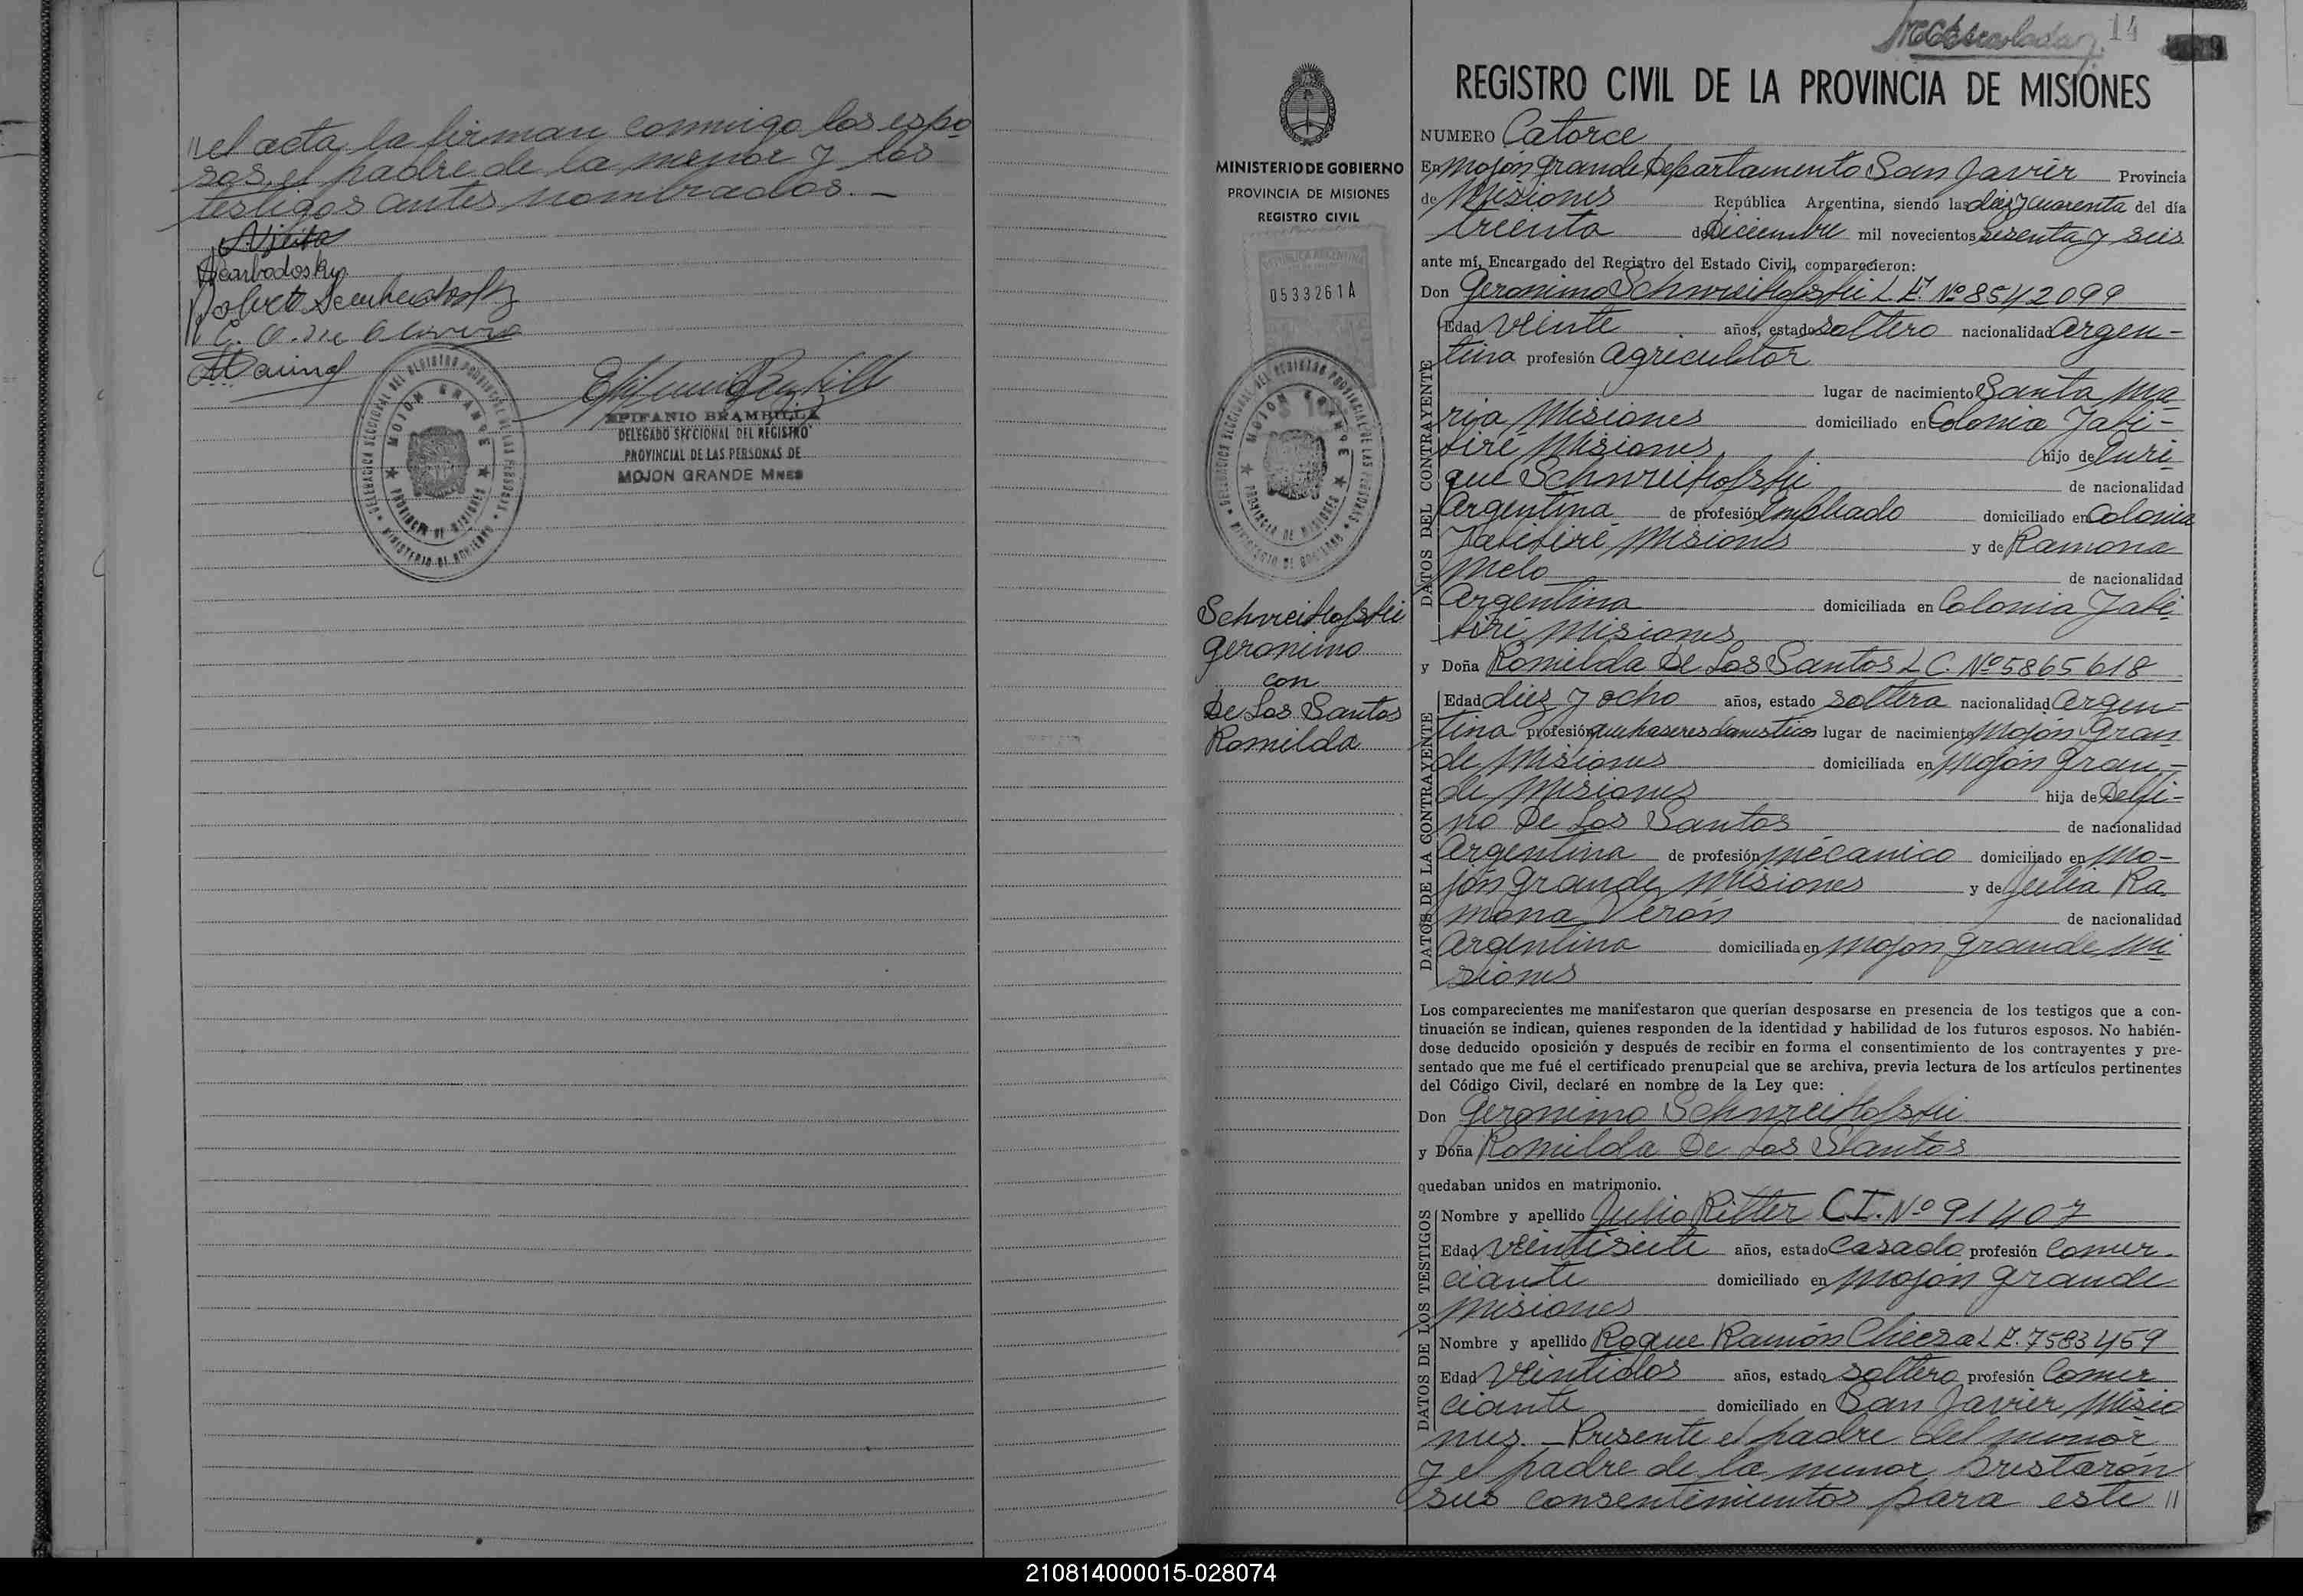 // el acta la firman conmigo los espo
sos, el padre de la menor y los
testigos antes nombrados. —
EPIFANIO BRAMBILLA
DELEGADO SECCIONAL DEL REGISTRO
PROVINCIAL DE LAS PERSONAS DE
MOJON GRANDE MNES
DELEGACION SECCIONAL DEL REGISTRO PROVINCIAL DE LAS PERSONAS
MOJON GRANDE
PROVINCIA DE MISIONES
MINISTERIO DE GOBIERNO
14
REGISTRO CIVIL DE LA PROVINCIA DE MISIONES
MINISTERIO DE GOBIERNO
PROVINCIA DE MISIONES
REGISTRO CIVIL
REPUBLICA ARGENTINA
0533261A
DELEGACION SECCIONAL DEL REGISTRO PROVINCIAL DE LAS PERSONAS
MOJON GRANDE
PROVINCIA DE MISIONES
MINISTERIO DE GOBIERNO
Schvreikofski
Geronimo
con
De Los Santos
Romilda
NUMERO Catorce
En Mojón Grande Departamento San Javier Provincia
de Misiones República Argentina, siendo las diez y cuarenta del día
treinta de Diciembre mil novecientos sesenta y seis
ante mí, Encargado del Registro del Estado Civil, comparecieron:
Don Geronimo Schvreikofski L E. Nº 8542099
DATOS DEL CONTRAYENTE
Edad veinte años, estado soltero nacionalidad Argen-
tina profesión Agricultor
lugar de nacimiento Santa Ma
ria Misiones domiciliado en Colonia Tabi-
Misiones hijo de Enri-
que Schvreikofski de nacionalidad
Argentina de profesión Empleado domiciliado en Colonia
Misiones y de Ramona
Melo de nacionalidad
Argentina domiciliada en Colonia
Misiones
y Doña Romilda De Los Santos L C. Nº 5865618
DATOS DE LA CONTRAYENTE
Edad diez y ocho años, estado soltera nacionalidad Argen-
tina profesión quehaseres domesticos lugar de nacimiento Mojón Gran
de Misiones domiciliada en Mojón Gran-
de Misiones hija de Delfi-
no De Los Santos de nacionalidad
Argentina de profesión mecanico domiciliado en Mo-
jón Grande Misiones y de Julia Ra
mona Verón de nacionalidad
Argentina domiciliada en Mojon Grande Mi
siones
Los comparecientes me manifestaron que querían desposarse en presencia de los testigos que a con-
tinuación se indican, quienes responden de la identidad y habilidad de los futuros esposos. No habién-
dose deducido oposición y después de recibir en forma el consentimiento de los contrayentes y pre-
sentado que me fué el certificado prenupcial que se archiva, previa lectura de los artículos pertinentes
del Código Civil, declaré en nombre de la Ley que:
Don Geronimo Schvreikofski
y Doña Romilda De Los Santos
quedaban unidos en matrimonio.
DATOS DE LOS TESTIGOS
Nombre y apellido Julio Ritter C I. Nº 91407
Edad veintisiete años, estado Casado profesión Comer-
ciante domiciliado en Mojón Grande
Misiones
Nombre y apellido Roque Ramón L E. 7583459
Edad veintidos años, estado soltero profesión Comer
ciante domiciliado en San Javier Misio
nes. — Presente el padre del menor
y el padre de la menor prestaron
sus consentimientos para este //
210814000015-028074